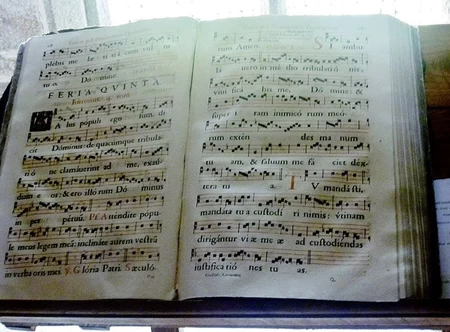 plebis me læ ti
tu o. Dómine.
FERIA QVINTA
Alus pópuli ego sum, di
cit Dóminus: de quacumque tribula-
tió ne clamáverint ad me, exáu-
diam e os: & ero illórum Dó minus
in per pétuū. Ps. Atténdite pópu-
le meus legem meā: inclináte aurem vestrā
in verba oris mei. V. Glória Patri. Sæculó-
rum Amen. SI ambu-
la uero in mé dio tribulatió nis,
viui fica bis me, Dó mine: &
super iram inimicó rum meó-
rum extén des ma num
tu am, & saluum me fá ciet déx-
tera tu a. TV mandásti
mandáta tu a custodí ri nimis: vtinam
dirigántur vi æ me æ ad custodiendas
iustifica tió nes tu as.